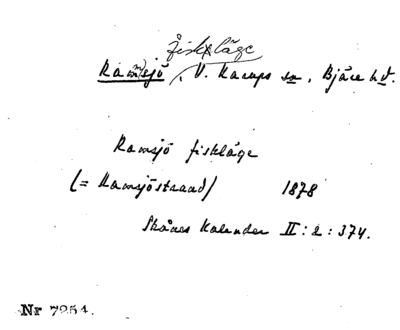 fiskläge
Ramsjö, V. Karups sn, Bjäre hd.
Ramsjö fiskläge
(= Ramsjöstrand) 1878
Skånes Kalender II:2:374.
Nr 7254.